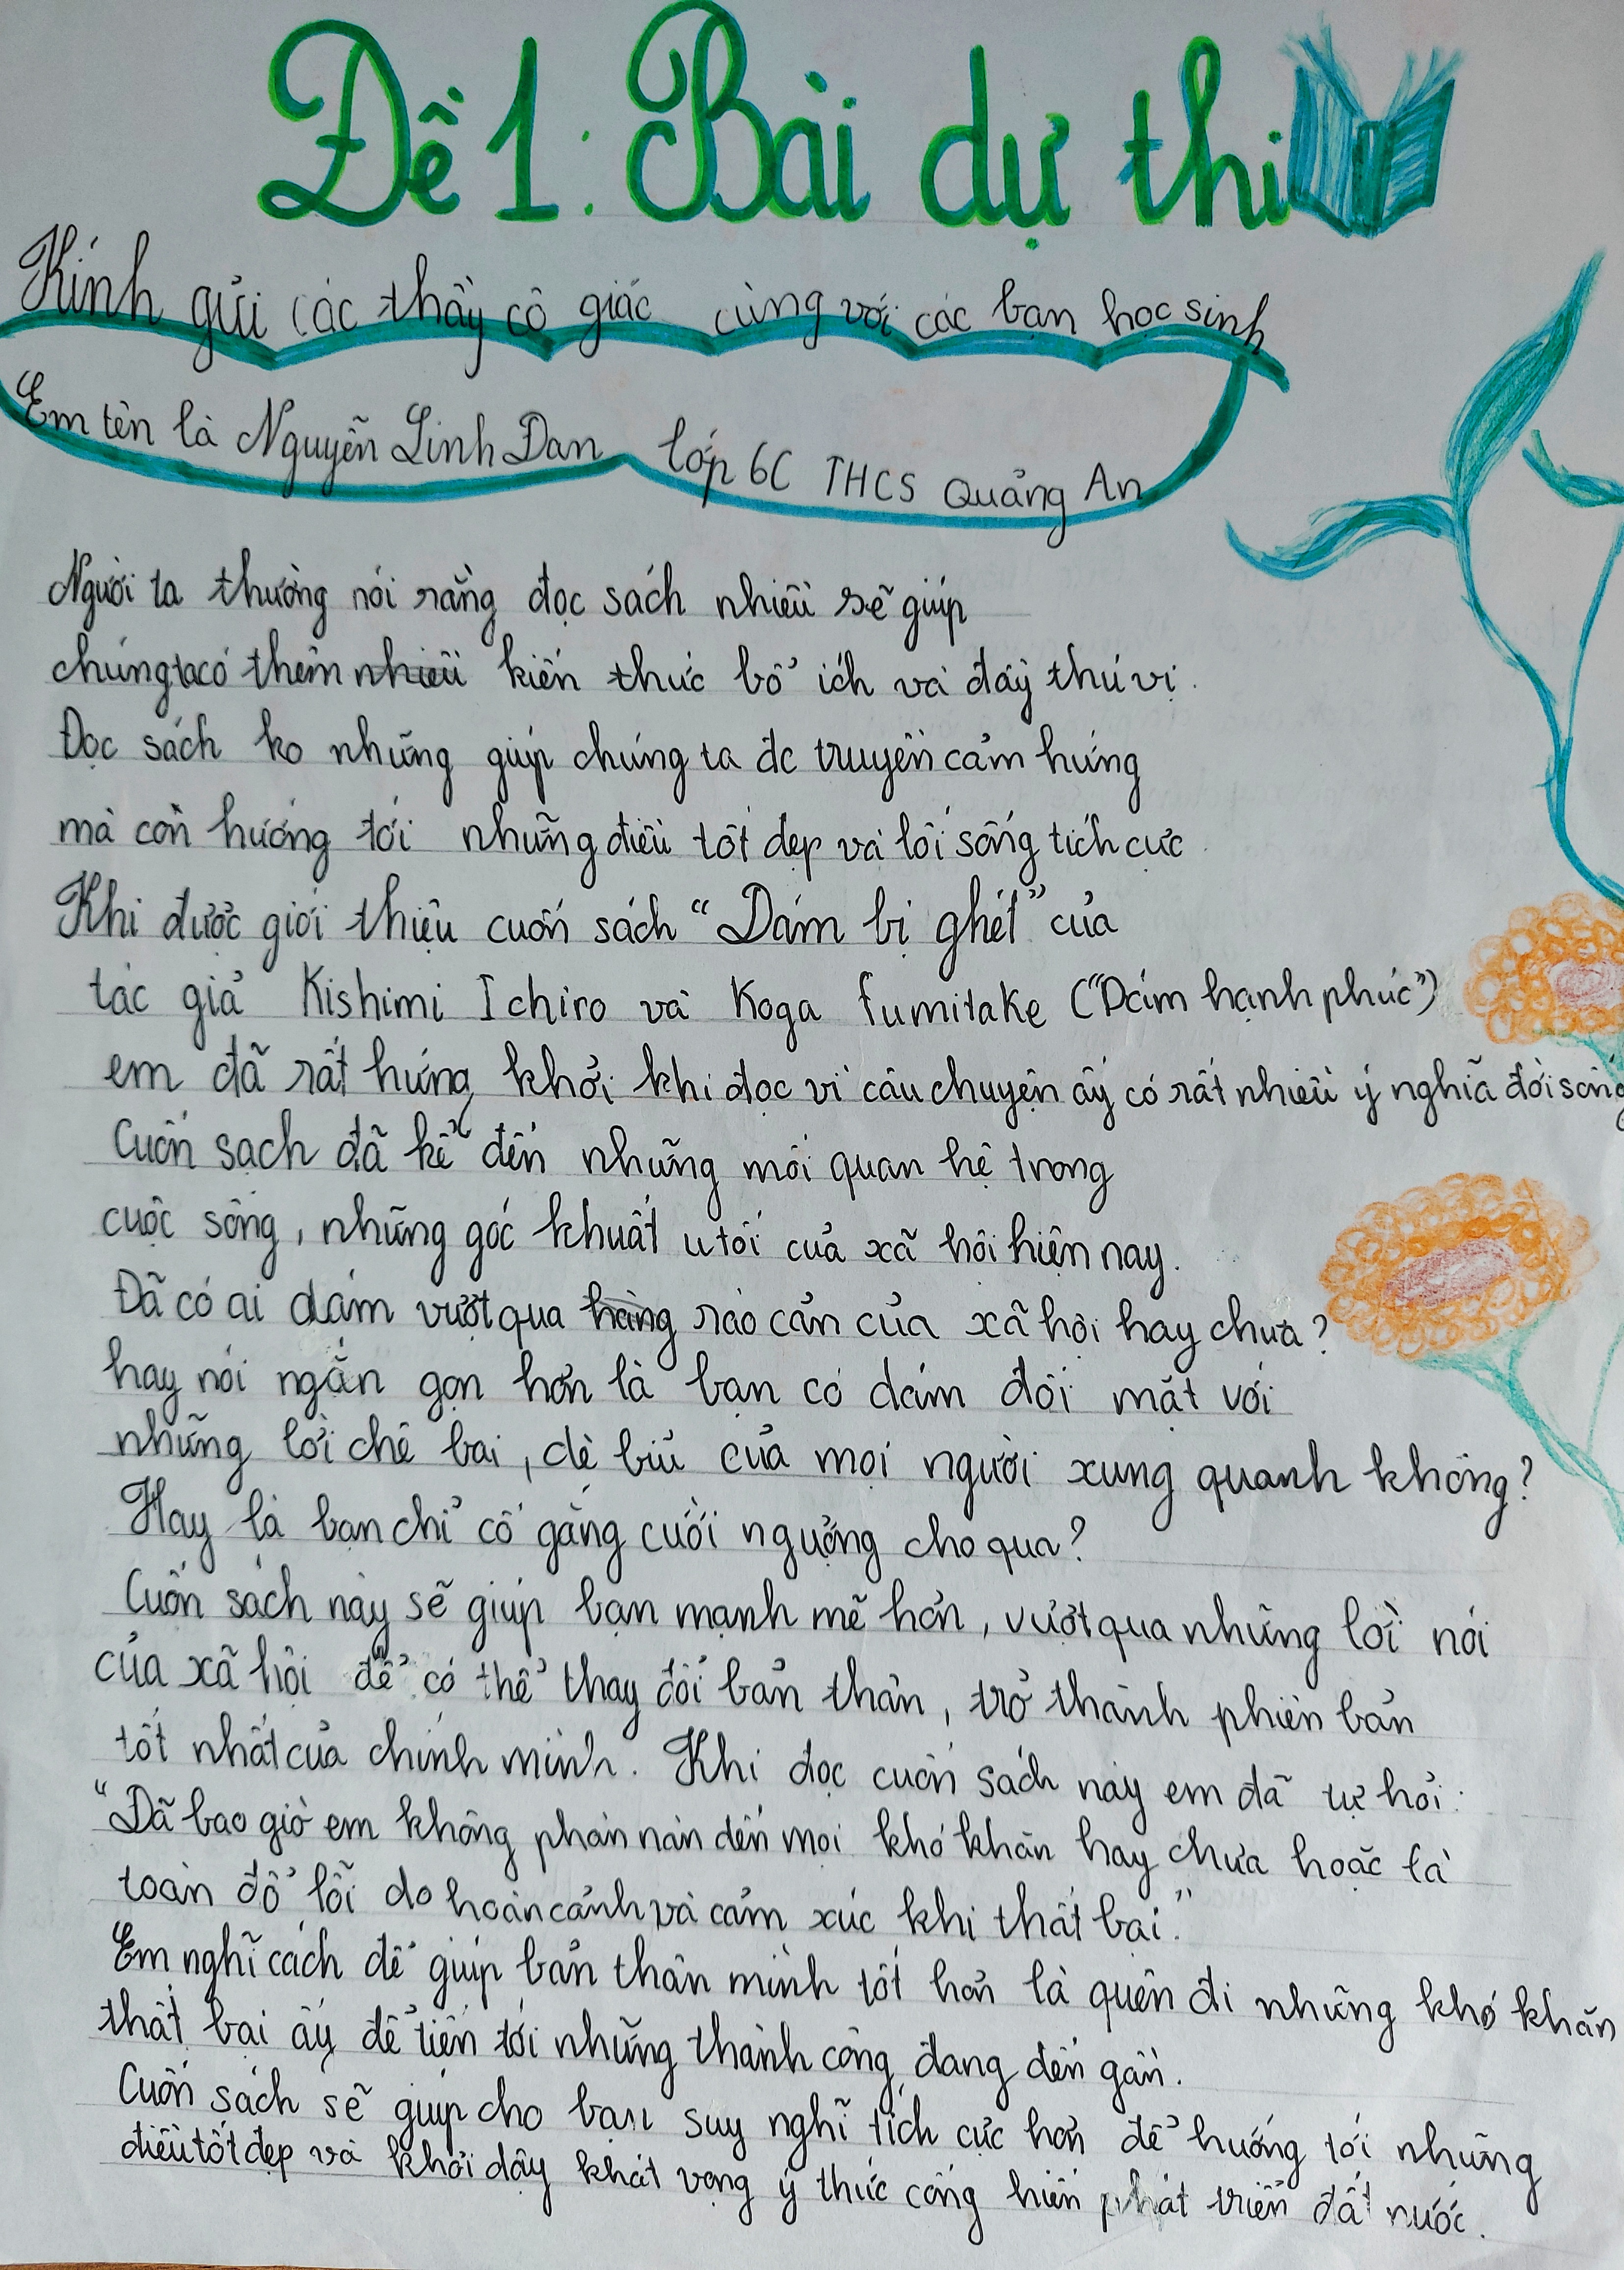 Đề 1: Bài dự thi
Kính gửi các thầy cô giác cùng với các bạn học sinh
Em tên là Nguyễn Linh Đan lớp 6C THCS Quảng An
Người ta thường nói rằng đọc sách nhiều sẽ giúp
chúng ta có thêm nhiều kiến thức bổ ích và đầy thú vị.
Đọc sách ko những giúp chúng ta đc truyền cảm hứng
mà còn hướng tới những điều tốt đẹp và lối sống tích cực.
Khi được giới thiệu cuốn sách "Dám bị ghét" của
tác giả Kishimi Ichiro và Koga fumitake ("Dám hạnh phúc")
em đã rất hứng khởi khi đọc vì câu chuyện ấy có rất nhiều ý nghĩa đời sống
Cuốn sách đã kể đến những mối quan hệ trong
cuộc sống, những góc khuất u tối của xã hội hiện nay.
Đã có ai dám vượt qua hàng rào cản của xã hội hay chưa?
hay nói ngắn gọn hơn là bạn có dám đối mặt với
những lời chê bai, dè bỉu của mọi người xung quanh không?
Hay là bạn chỉ cố gắng cười ngượng cho qua?
Cuốn sách này sẽ giúp bạn mạnh mẽ hơn, vượt qua những lời nói
của xã hội để có thể thay đổi bản thân, trở thành phiên bản
tốt nhất của chính mình. Khi đọc cuốn sách này em đã tự hỏi:
"Đã bao giờ em không phàn nàn đến mọi khó khăn hay chưa hoặc là
toàn đổ lỗi do hoàn cảnh và cảm xúc khi thất bại."
Em nghĩ cách để giúp bản thân mình tốt hơn là quên đi những khó khăn
thất bại ấy để tiến tới những thành công đang đến gần.
Cuốn sách sẽ giúp cho bạn suy nghĩ tích cực hơn để hướng tới những
điều tốt đẹp và khơi dậy khát vọng ý thức cống hiến phát triển đất nước.